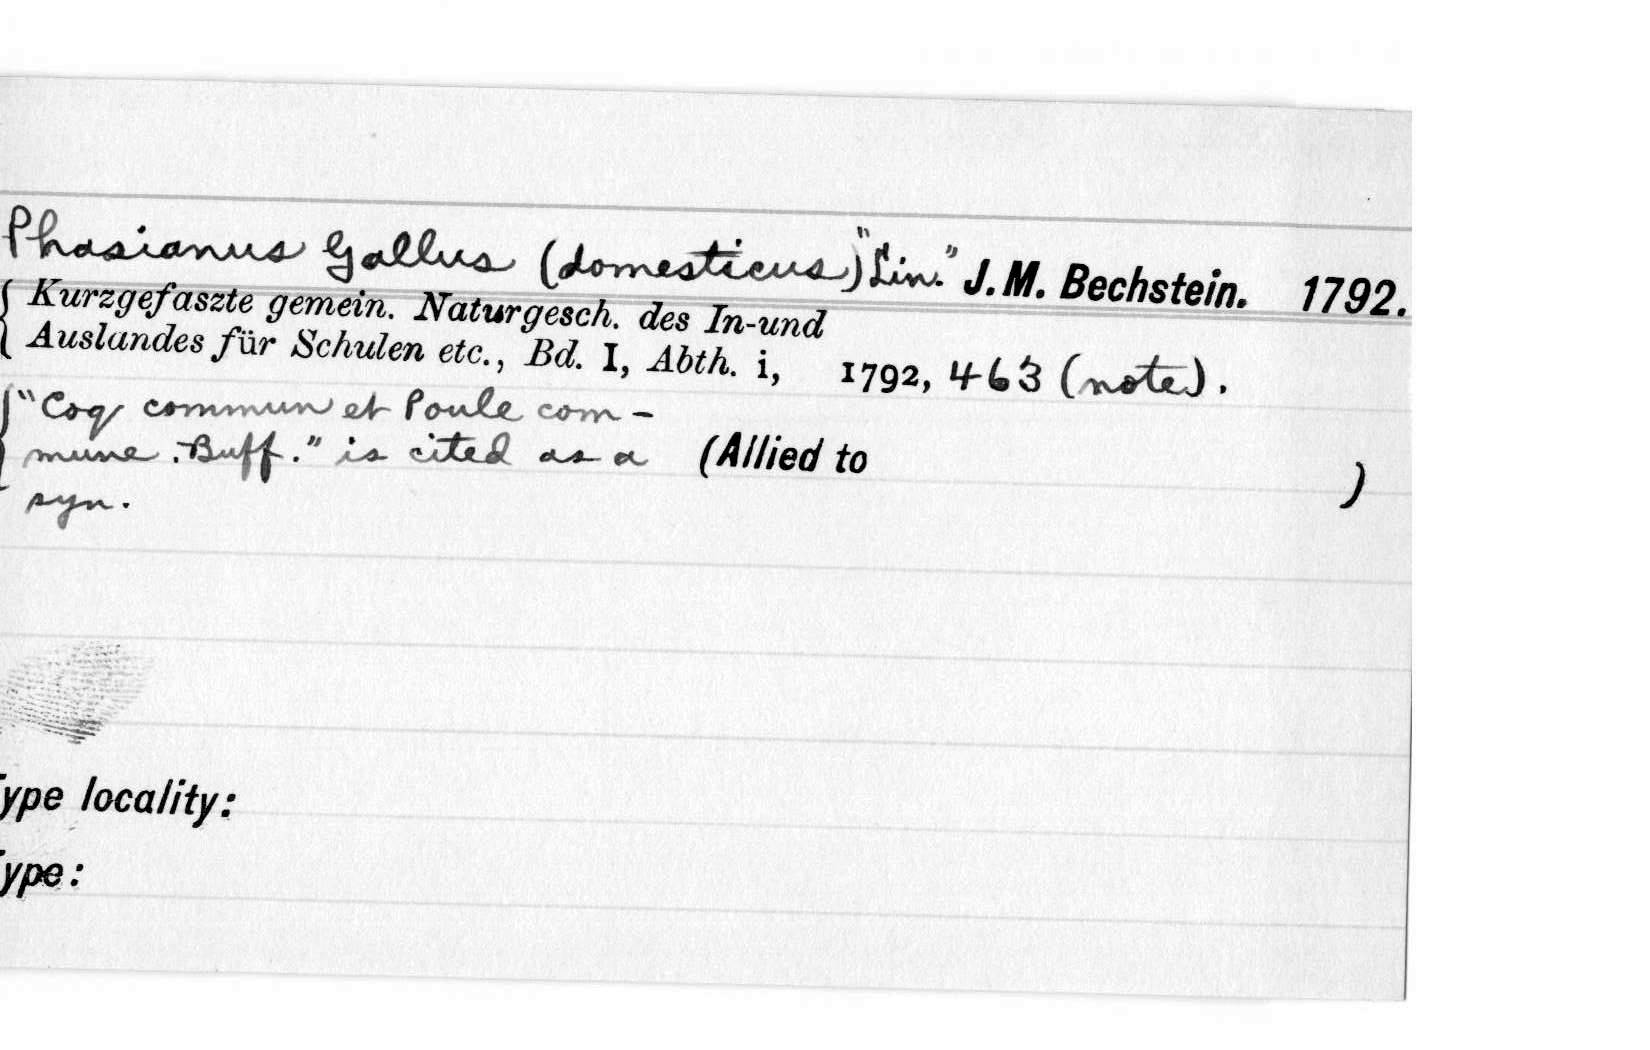 Phasianus Gallus (domesticus) "Lin." J. M. Bechstein. 1792.
Kurzgefaszte gemein. Naturgesch. des In-und
Auslandes für Schulen etc., Bd. I, Abth. i, 1792, 463 (note).
"Coq commun et Poule com-
mune. Buff." is cited as a (Allied to )
syn.
ype locality:
ype: